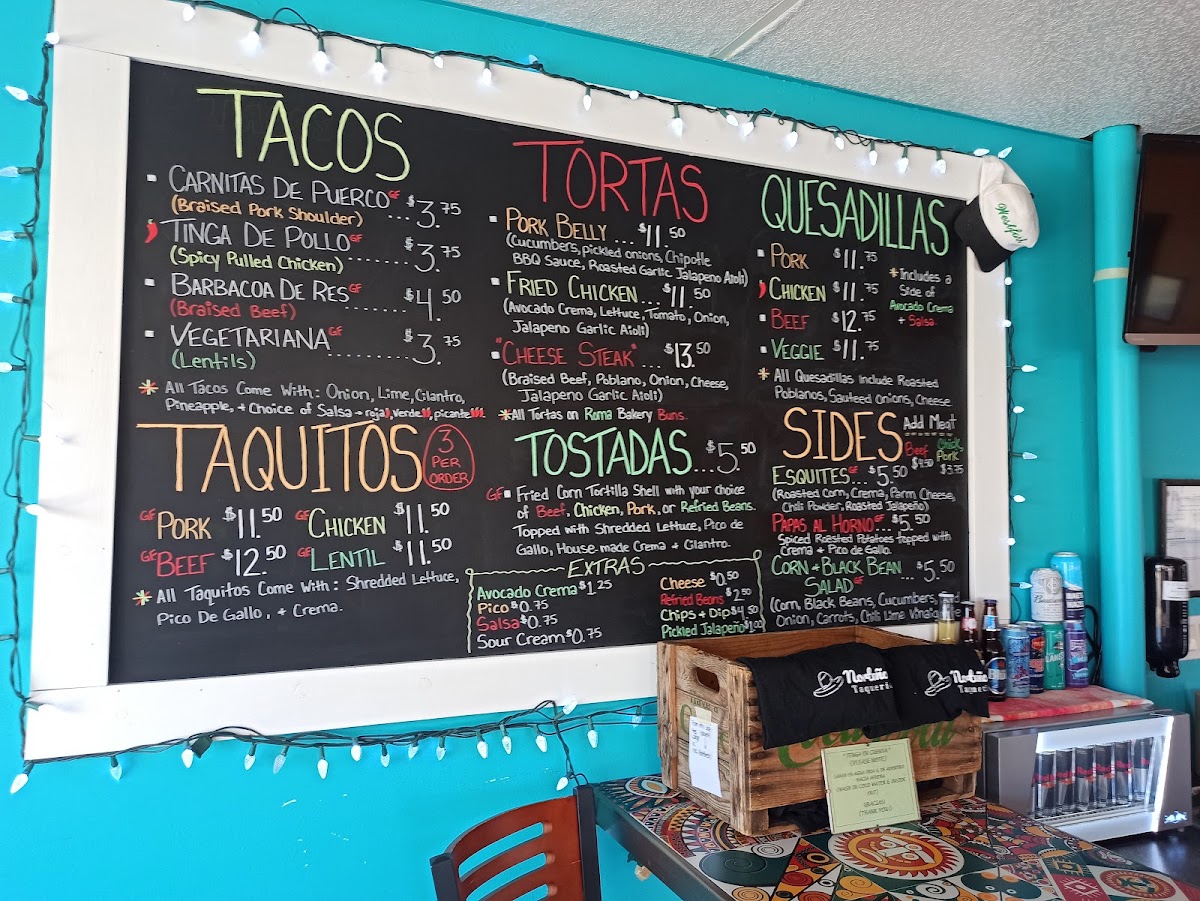 TACOS
CARNITAS DE PUERCO GF ... $3.75
(Braised Pork Shoulder)
TINGA DE POLLO GF ....... $3.75
(Spicy Pulled Chicken)
BARBACOA DE RES GF $4.50
(Braised Beef)
VEGETARIANA GF ......... $3.75
(Lentils)
* All Tacos Come With: Onion, Lime, Cilantro,
Pineapple, + Choice of Salsa → roja, Verde, picante
TAQUITOS
3
PER
ORDER
GF PORK $11.50 GF CHICKEN $11.50
GF BEEF $12.50 GF LENTIL $11.50
* All Taquitos Come With: Shredded Lettuce,
Pico De Gallo, + Crema.
TORTAS
PORK BELLY ... $11.50
(Cucumbers, pickled onions, Chipotle
BBQ Sauce, Roasted Garlic Jalapeno Aioli)
FRIED CHICKEN ... $11.50
(Avocado Crema, Lettuce, Tomato, Onion,
Jalapeno Garlic Aioli)
"CHEESE STEAK" ... $13.50
(Braised Beef, Poblano, Onion, Cheese,
Jalapeno Garlic Aioli)
* All Tortas on Roma Bakery Buns.
TOSTADAS ... $5.50
GF Fried Corn Tortilla Shell with your choice
of Beef, Chicken, Pork, or Refried Beans.
Topped with Shredded Lettuce, Pico de
Gallo, House-made Crema + Cilantro.
EXTRAS
Avocado Crema $1.25
Pico $0.75
Salsa $0.75
Sour Cream $0.75
Cheese $0.50
Refried Beans $2.50
Chips + Dip $4.50
Pickled Jalapeño $1.00
QUESADILLAS
PORK $11.75
CHICKEN $11.75
BEEF $12.75
VEGGIE $11.75
* Includes a
Side of
Avocado Crema
+ Salsa.
* All Quesadillas include Roasted
Poblanos, Sauteed onions, Cheese
SIDES
Add Meat
Beef $4.50
Chick, Pork $3.75
ESQUITES GF ... $5.50
(Roasted Corn, Crema, Parm Cheese,
Chili Powder, Roasted Jalapeño)
PAPAS AL HORNO GF ... $5.50
Spiced Roasted Potatoes topped with
Crema + Pico de Gallo.
CORN + BLACK BEAN
SALAD GF ... $5.50
(Corn, Black Beans, Cucumbers,
Onion, Carrots, Chili Lime
Norteño
Taqueria
(PLEASE NOTE)
(WASH IN COLD WATER & INSIDE
OUT)
GRACIAS!
(THANK YOU)